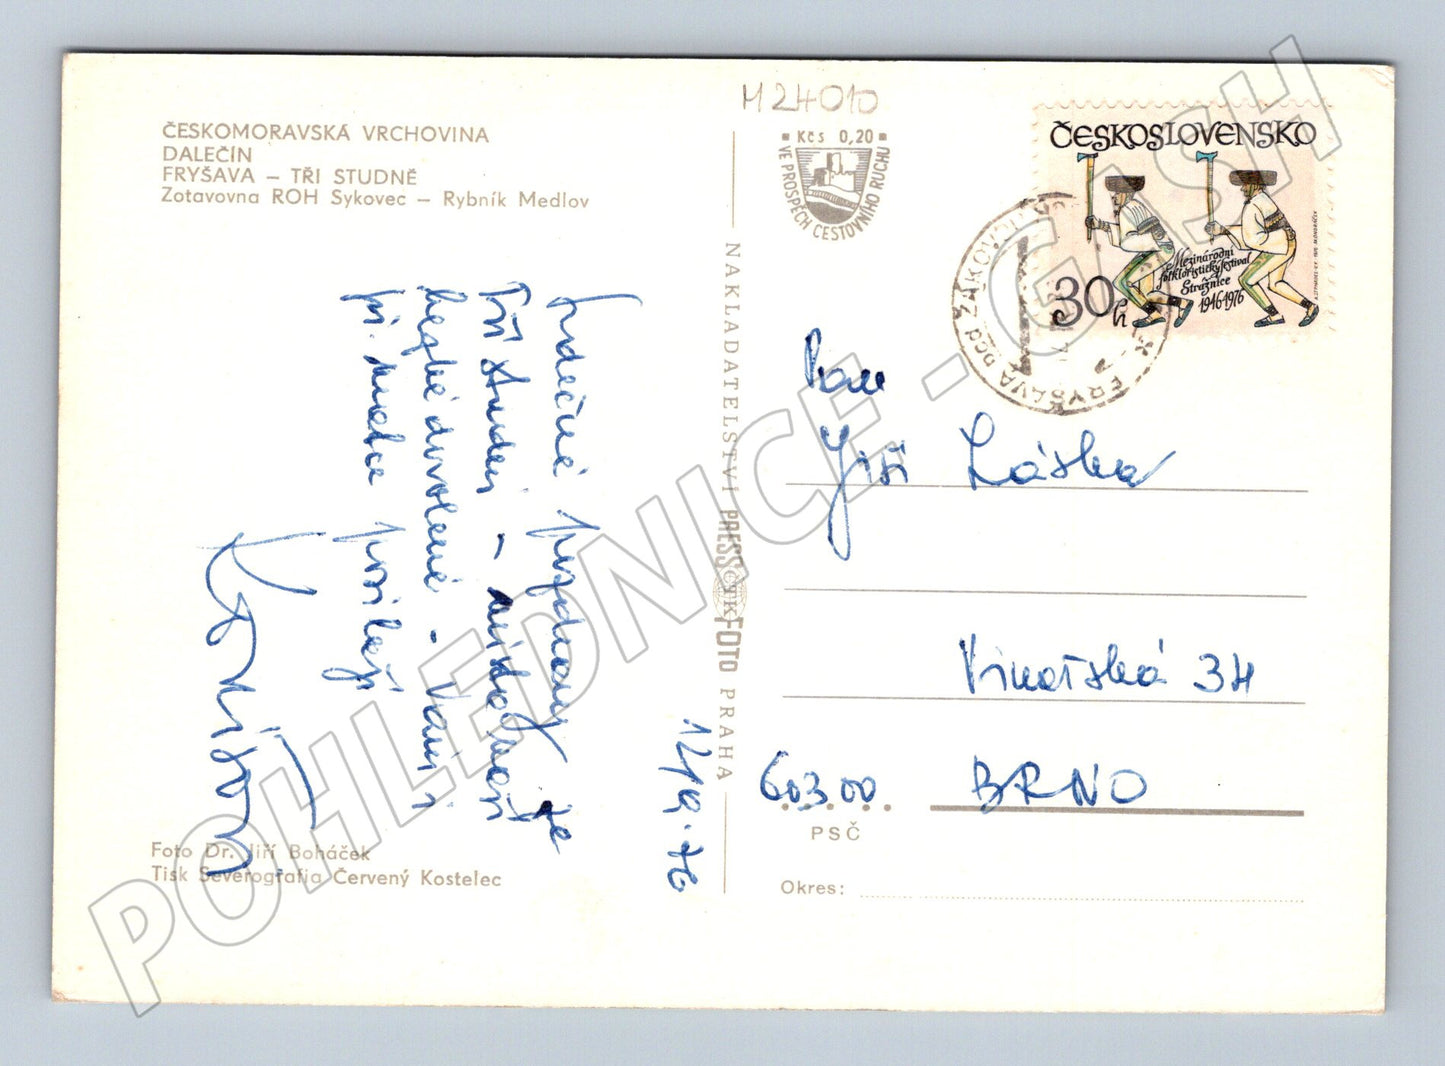 ČESKOMORAVSKÁ VRCHOVINA
DALEČÍN
FRYŠAVA – TŘI STUDNĚ
Zotavovna ROH Sykovec – Rybník Medlov
M24010
Kčs 0,20
VE PROSPĚCH CESTOVNÍHO RUCHU
ČESKOSLOVENSKO
Mezinárodní
folkloristický festival
Strážnice
1946-1976
30h
FRYŠAVA pod ŽÁKOVOU
Srdečné pozdravy ze
Tří Studní –
hezké dovolené - Vám i
pí. matce posílají
12/9.76
Pan
Jiří Láska
Vinařská 34
603 00 BRNO
PSČ
Okres:
NAKLADATELSTVÍ PRESSFOTO PRAHA
ČTK
Foto Dr. Jiří Boháček
Tisk Severografia Červený Kostelec
POHLEDNICE - GASH